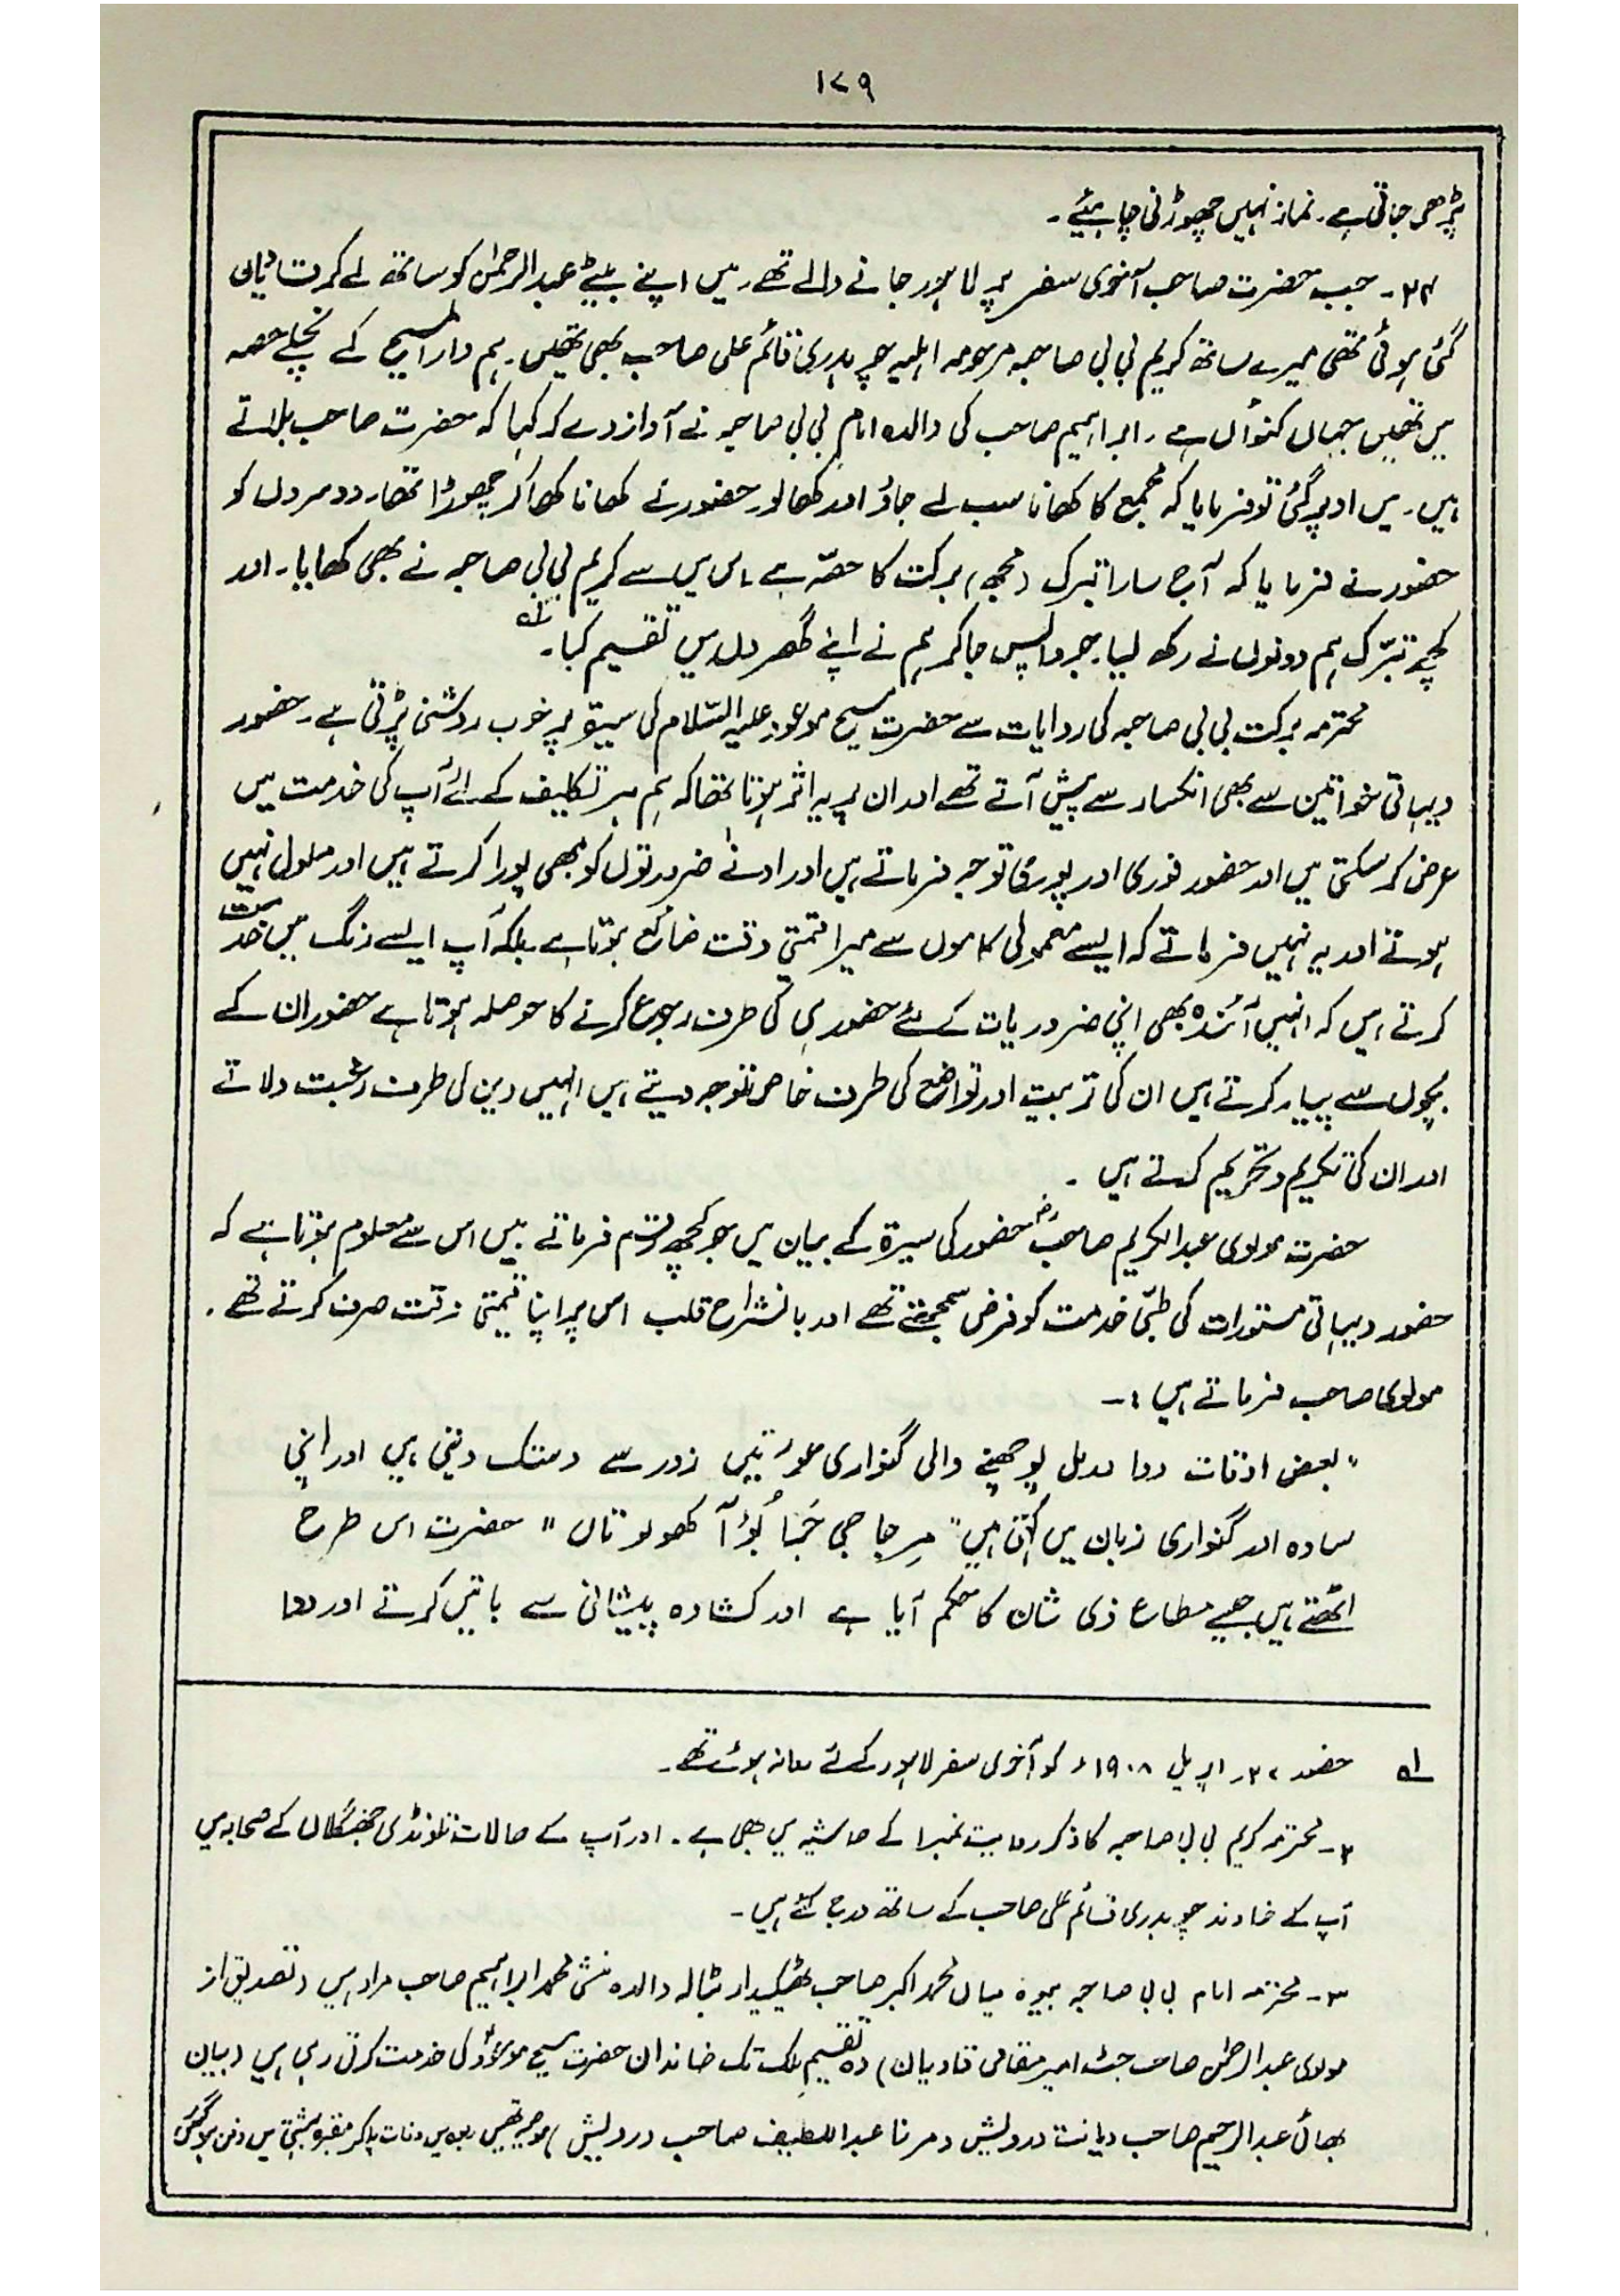 ۱۷۹
پڑھی جاتی ہے۔ نماز نہیں چھوڑنی چاہیئے۔
۳۴۔ جب حضرت صاحب آخری سفر پر لاہور جانے والے تھے۔ میں اپنے بیٹے عبدالرحمٰن کو ساتھ لے کر قادیان
گئی ہوئی تھی میرے ساتھ کریم بی بی صاحبہ مرحومہ اہلیہ چوہدری قائم علی صاحب بھی تھیں۔ ہم دارالمسیح کے نچلے حصہ
میں تھیں جہاں کنواں ہے۔ ابراہیم صاحب کی والدہ امام بی بی صاحبہ نے آواز دے کر کہا کہ حضرت صاحب بلاتے
ہیں۔ میں اوپر گئی تو فرمایا کہ مجمع کا کھانا سب لے جاؤ اور کھالو۔ حضور نے کھانا کھا کر چھوڑا تھا۔ دوسروں کو
حضور نے فرمایا کہ آج سارا تبرک (مجھ) برکت کا حصّہ ہے۔ اس میں سے کریم بی بی صاحبہ نے بھی کھایا۔ اور
کچھ تبرّک ہم دونوں نے رکھ لیا۔ جو واپس جا کر ہم نے اپنے گھروں میں تقسیم کیا۔ لہ
محترمہ برکت بی بی صاحبہ کی روایات سے حضرت مسیح موعود علیہ السّلام کی سیرۃ پر خوب روشنی پڑتی ہے۔ حضور
دیہاتی خواتین سے بھی انکسار سے پیش آتے تھے اور ان پر یہ اثر ہوتا تھا کہ ہم ہر تکلیف کے لئے آپ کی خدمت میں
عرض کر سکتی ہیں اور حضور فوری اور پوری توجہ فرماتے ہیں اور ادنےٰ ضرورتوں کو بھی پورا کرتے ہیں اور ملول نہیں
ہوتے اور یہ نہیں فرماتے کہ ایسے معمولی کاموں سے میرا قیمتی وقت ضائع ہوتا ہے بلکہ آپ ایسے رنگ میں خدمت
کرتے ہیں کہ انہیں آئندہ بھی اپنی ضروریات کے لئے حضور ہی کی طرف رجوع کرنے کا حوصلہ ہوتا ہے حضور ان کے
بچوں سے پیار کرتے ہیں ان کی تربیت اور تواضع کی طرف خاص توجہ دیتے ہیں انہیں دین کی طرف رغبت دلاتے
اور ان کی تکریم و تحریم کرتے ہیں۔
حضرت مولوی عبدالکریم صاحبؓ حضور کی سیرۃ کے بیان میں جو کچھ رقم فرماتے ہیں اس سے معلوم ہوتا ہے کہ
حضور دیہاتی مستورات کی طبّی خدمت کو فرض سمجھتے تھے اور بانشراح قلب اس پر اپنا قیمتی وقت صرف کرتے تھے۔
مولوی صاحب فرماتے ہیں :۔
"بعض اوقات دوا درمل پوچھنے والی گنواری عورتیں زور سے دستک دیتی ہیں اور اپنی
سادہ اور گنواری زبان میں کہتی ہیں" مِرجا جی جَبا بُوْآ کھولو تاں" حضرت اس طرح
اٹھتے ہیں جیسے مطاع ذی شان کا حکم آیا ہے اور کشادہ پیشانی سے باتیں کرتے اور دوا
لہ حضور ۲۷۔ اپریل ۱۹۰۸ء کو آخری سفر لاہور کے لئے روانہ ہوئے تھے۔
۲۔ محترمہ کریم بی بی صاحبہ کا ذکر روایت نمبر۱ کے حاشیہ میں بھی ہے۔ اور آپ کے حالات تلونڈی جھنگلاں کے صحابہ میں
آپ کے خاوند چوہدری قائم علی صاحب کے ساتھ درج کئے ہیں۔
۳۔ محترمہ امام بی بی صاحبہ بیوہ میاں محمد اکبر صاحب ٹھیکیدار بٹالہ والدہ منشی محمد ابراہیم صاحب مراد ہیں (تصدیق از
مولوی عبدالرحمٰن صاحب جٹ امیر مقامی قادیان) وہ تقسیمِ ملک تک خاندان حضرت مسیح موعودؑ کی خدمت کرتی رہی ہیں (بیان
بھائی عبدالرحیم صاحب دیانت درویش و مرزا عبداللطیف صاحب درویش) موصیہ تھیں ربوہ میں وفات پا کر مقبرہ بہشتی میں دفن ہو گئیں